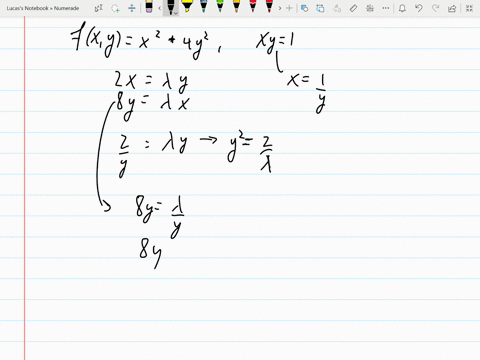 Lucas's Notebook » Numerade
f(x,y) = x² + 4y², xy=1
2x = λy x = 1/y
8y = λx
2/y = λy → y² = 2/λ
8y = λ/y
8y